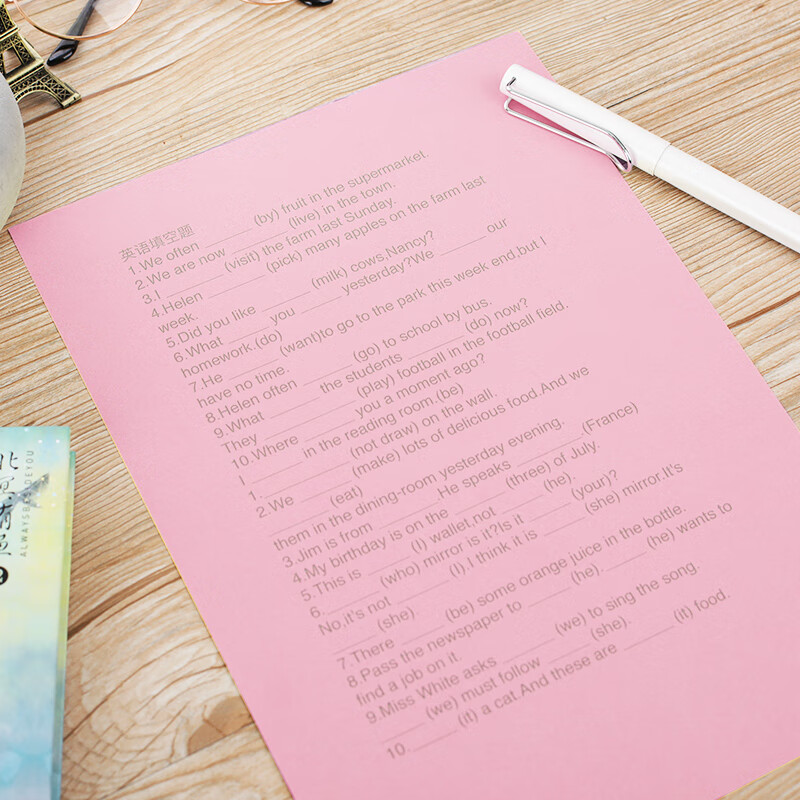 英语填空题
1.We often ______ (by) fruit in the supermarket.
2.We are now ______ (live) in the town.
3.I ______ (visit) the farm last Sunday.
4.Helen ______ (pick) many apples on the farm last
week.
5.Did you like ______ (milk) cows,Nancy?
6.What ______ you ______ yesterday?We ______ our
homework.(do)
7.He ______ (want)to go to the park this week end,but I
have no time.
8.Helen often ______ (go) to school by bus.
9.What ______ the students ______ (do) now?
They ______ (play) football in the football field.
10.Where ______ you a moment ago?
I ______ in the reading room.(be)
1.______ (not draw) on the wall.
2.We ______ (make) lots of delicious food.And we
______ (eat)
them in the dining-room yesterday evening.
3.Jim is from ______.He speaks ______.(France)
4.My birthday is on the ______ (three) of July.
5.This is ______ (I) wallet.not ______ (he).
6.______ (who) mirror is it?Is it ______ (your)?
No.it's not ______ (I).I think it is ______ (she) mirror.It's
______ (she)
7.There ______ (be) some orange juice in the bottle.
8.Pass the newspaper to ______ (he).______ (he) wants to
find a job on it.
9.Miss White asks ______ (we) to sing the song.
______ (we) must follow ______ (she).
10.______ (it) a cat.And these are ______ (it) food.
ALWAYSBESIDEYOU
9